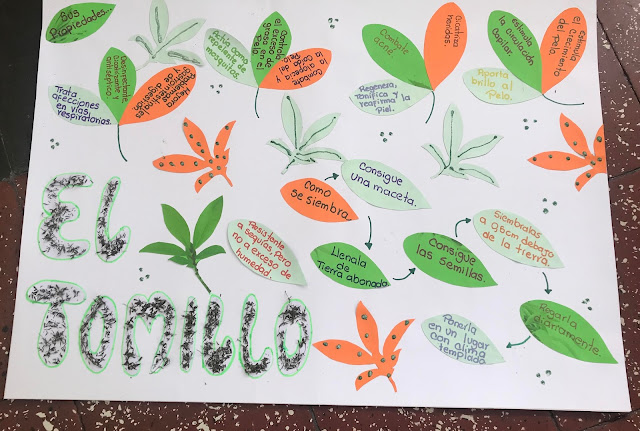 Sus
Propiedades...
Desinfectante,
Cicatrizante y
antiséptico
Mejora
Problemas
gastrointestinales
y de digestión
Trata
afecciones
en vías
respiratorias.
Actúa como
repelente de
mosquitos
Controla
el exceso de
grasa en el
Pelo
Combate
la alopecia y
la caída del
Pelo
Combate
acné
Cicatriza
heridas.
Regenera,
tonifica y
reafirma la
Piel.
Estimula
la circulación
capilar.
Estimula
el crecimiento
del pelo
Aporta
brillo al
Pelo.
EL
TOMILLO
Resistente
a sequías, pero
no a exceso de
humedad.
Como
se siembra.
Consigue
una maceta.
Llenala
de
Tierra abonada.
Consigue
las semillas.
Siembralas
a 0,5cm debajo
de la tierra.
Regarla
diariamente.
Ponerla
en un lugar
con clima
templado